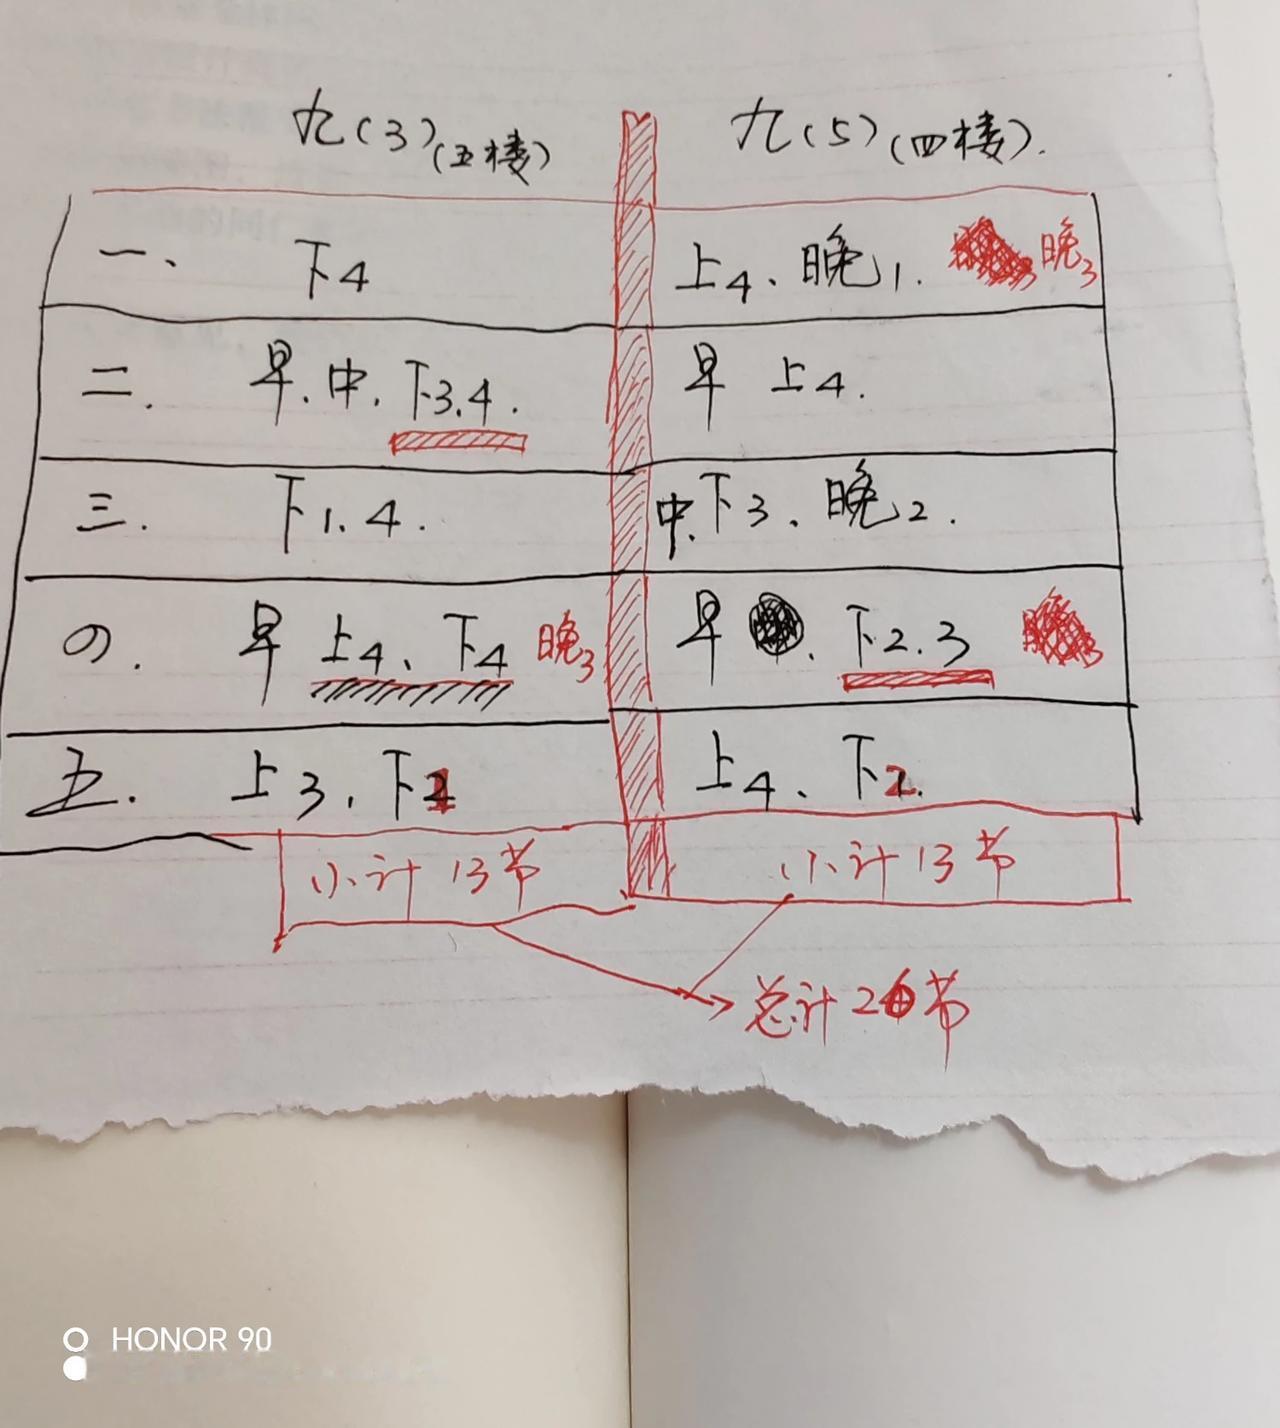 九(3)(五楼) 九(5)(四楼).
一、 下4 上4、晚1. 晚3
二. 早、中、下3.4. 早 上4.
三. 下1、4. 中、下3、晚2.
四. 早 上4、下4 晚3 早 . 下2.3
五. 上3、下 上4、下2.
小计13节 小计13节
总计26节
HONOR 90